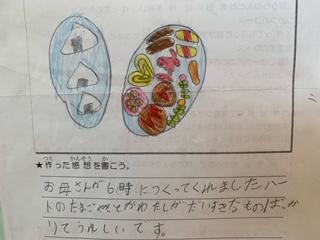 ★作った感想を書こう。
お母さんが6時につくってくれましたハー
トのたまごやきとかわたしがだいすきなものばっか
りでうれしいです。